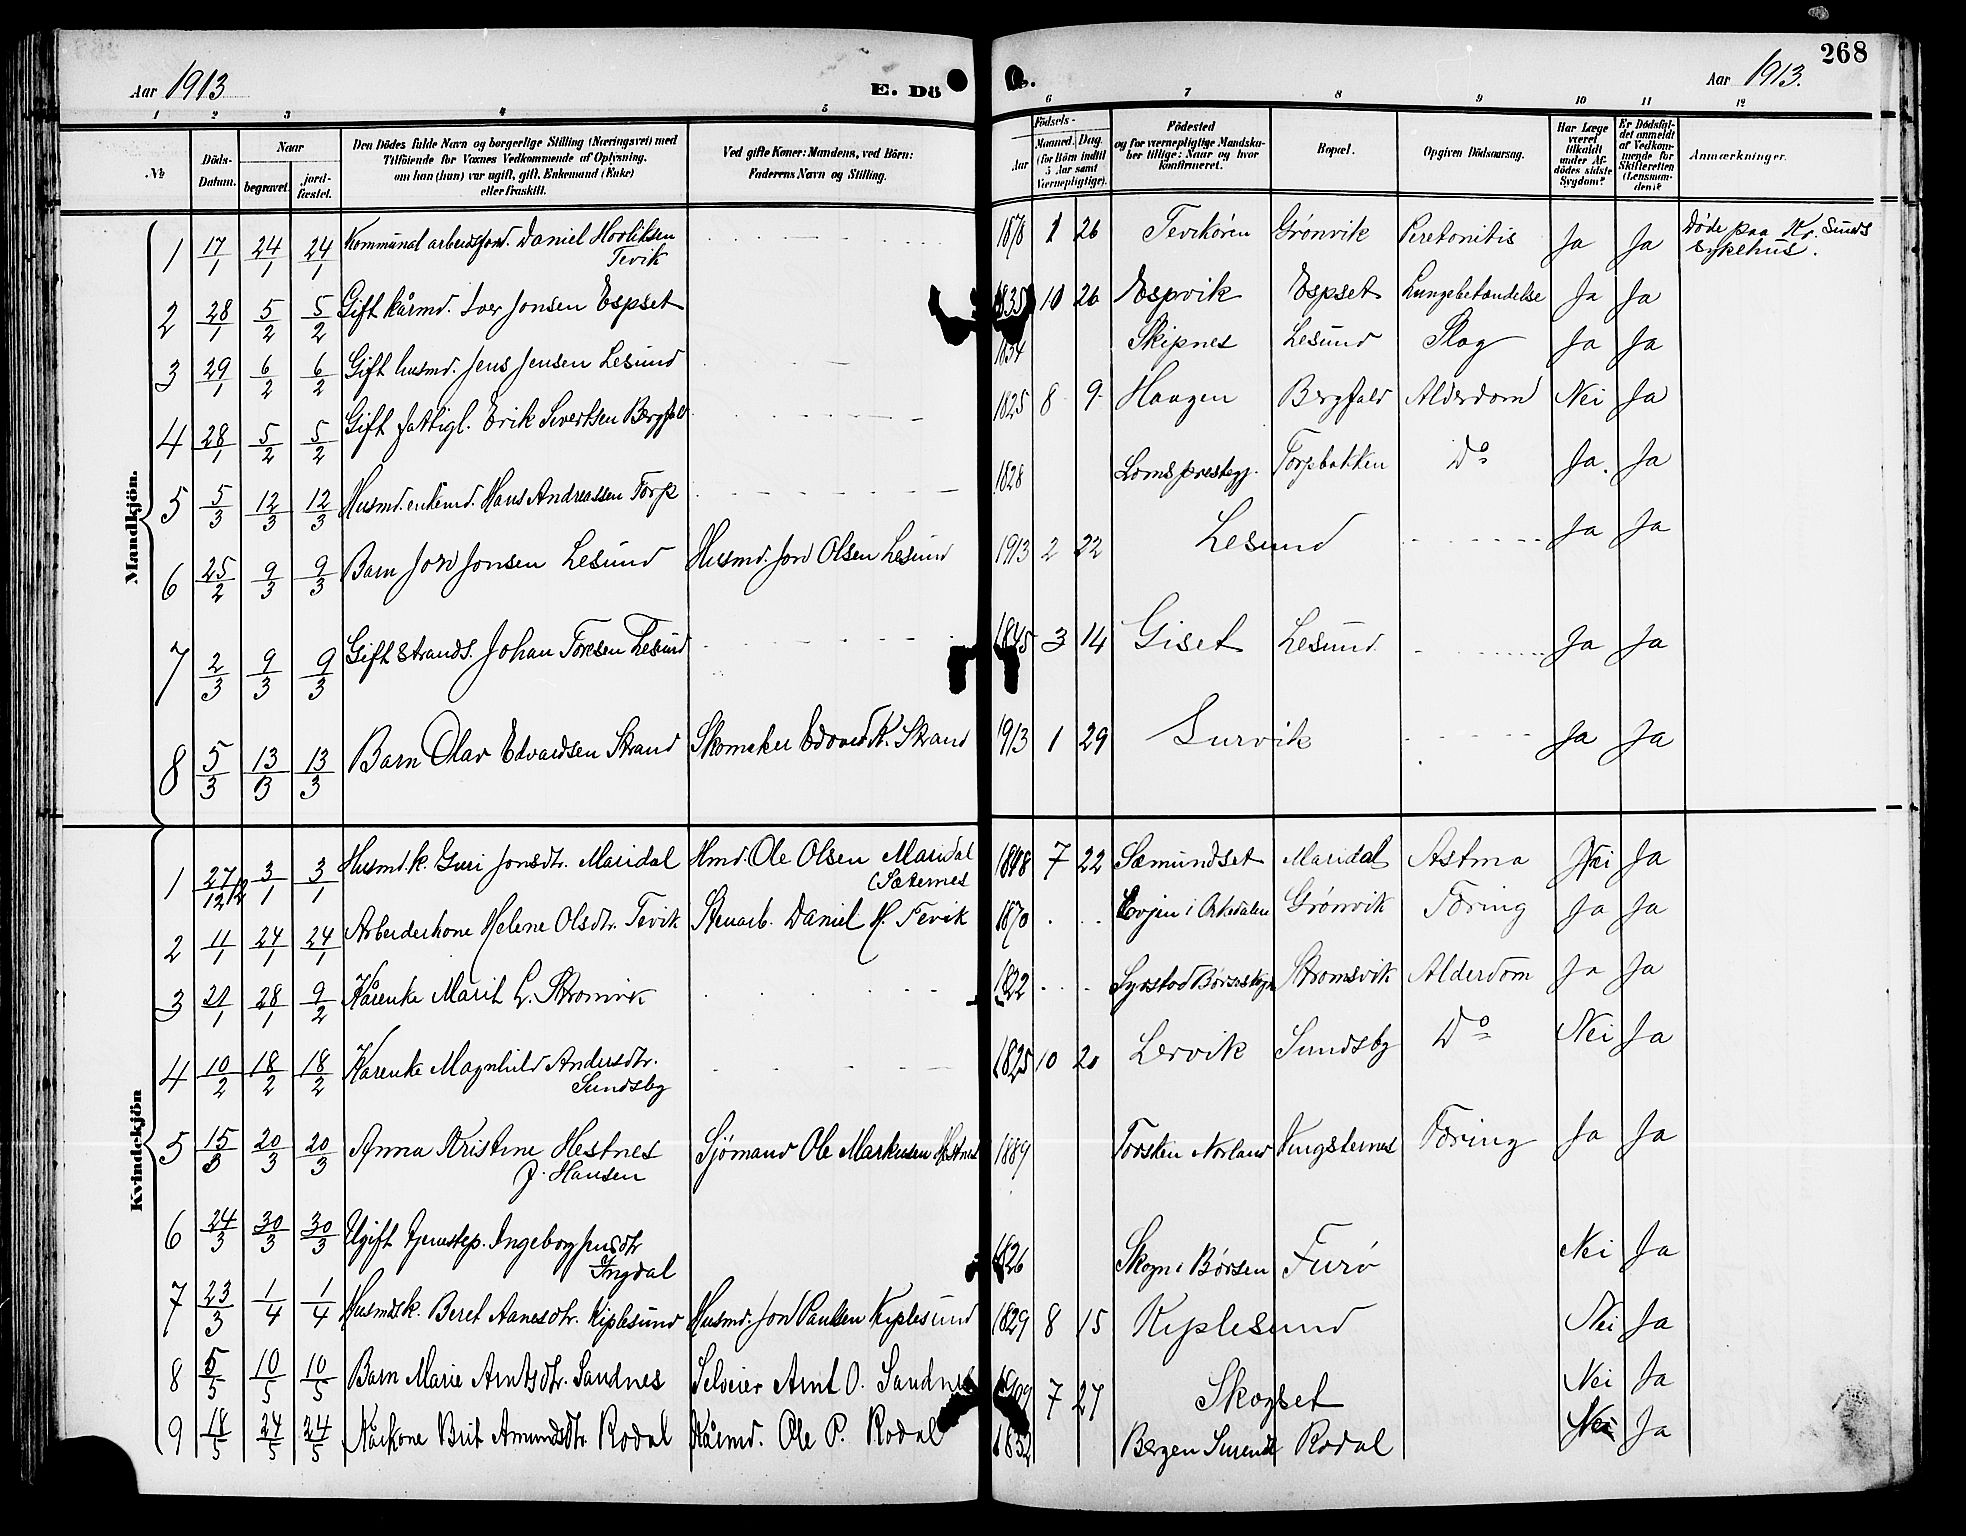 268
Aar 1913
E. Dö
Aar 1913.
1 2 3 4 5 6 7 8 9 10 11 12
№
Döds-Datum.
Naar
begravet.
jord-fæstet.
Den Dödes fulde Navn og borgerlige Stilling (Næringsvei) med
Tilföiende for Voxnes Vedkommende af Oplysning,
om han (hun) var ugift, gift, Enkemand (Enke)
eller fraskilt.
Ved gifte Koner: Mandens, ved Börn:
Faderens Navn og Stilling.
Födsels-
Aar
Maaned. Dag.
(for Börn indtil
5 Aar samt
Værnepligtige).
Födested
og for værnepligtige Mandska-
ber tillige: Naar og hvor
konfirmeret.
Bopæl.
Opgiven Dödsaarsag.
Har Læge
været
tilkaldt
under Af-
dödes sidste
Sygdom?
Er Dödsfal-
det anmeldt
af Vedkom-
mende for
Skifteretten
(Lensman-
den)?
Anmærkninger.
Mandkjön.
1 17/1 24/1 24/1 Kommunal arbeidsford. Daniel Hovliksen Tevik 1878 1 26 Grønvik Peretonitis Ja Ja Døde paa Kr. Sunds
sykehus.
2 28/1 5/2 5/2 Gift kårmd. Iver Jonsen Espset 1835 10 26 Espvik Espset Lungebetændelse Ja Ja
3 29/1 6/2 6/2 Gift husmd. Jens Jensen Lesund 1834 Skipnes Lesund Slag Ja Ja
4 28/1 5/2 5/2 Gift fattigl. Erik Sivertsen Bergfald 1825 8 9 Haagen Bergfald Alderdom Nei Ja
5 5/3 12/3 12/3 Husmd. enkemd. Hans Andreassen Torp 1828 Loms prestegj. Torpbakken Do Ja. Ja
6 25/2 9/3 9/3 Barn Jon Jonsen Lesund Husmd. Jon Olsen Lesund 1913 2 22 Lesund Ja Ja
7 2/3 9/3 9/3 Gift strands. Johan Toresen Lesund 1845 3 14 Giset Lesund Ja Ja
8 5/3 13/3 13/3 Barn Olav Edvardsen Strand Skomaker Edvard K. Strand 1913 1 29 Survik Ja Ja
Kvindekjön
1 27/12 12 3/1 3/1 Husmd.k. Guri Jonsdtr. Maridal Hmd. Ole Olsen Maridal
(Sæternes 1848 7 22 Sæmundset Maridal Astma Nei Ja
2 11/1 24/1 24/1 Arbeiderkone Helene Olsdtr. Tevik Stenarb. Daniel H. Tevik 1870 Evjen i Orkedalen Grønvik Tæring Ja Ja
3 21/1 28/1 9/2 Kårenke Marit L. Strømvik 1822 Strømsvik Alderdom Ja Ja
4 10/2 18/2 18/2 Kårenke Magnhild Andersdtr.
Sundsby 1825 10 20 Lervik Sundsby Do Nei Ja
5 15/3 20/3 20/3 Anna Kristine Hestnes
f. Hansen Sjömand Ole Markusen Hestnes 1889 Torsken Norland Kungsternes Tæring Ja Ja
6 24/3 30/3 30/3 Ugift tjenestep. Ingeborg Jensdtr
Ingdal 1826 Skogn i Børsen Furø Nei Ja
7 23/3 1/4 1/4 Husmdsk. Beret Aanesdtr. Kiplesund Husmd. Jon Paulsen Kiplesund 1829 8 15 Kiplesund Nei Ja
8 5/5 10/5 10/5 Barn Marie Arntsdtr. Sandnes Selveier Arnt O. Sandnes 1909 7 27 Skogset Nei Ja
9 18/5 24/5 24/5 Kårkone Brit Amundsdtr. Rodal Kårmd. Ole P. Rodal 1832 Bergen Surendal Rodal Nei Ja